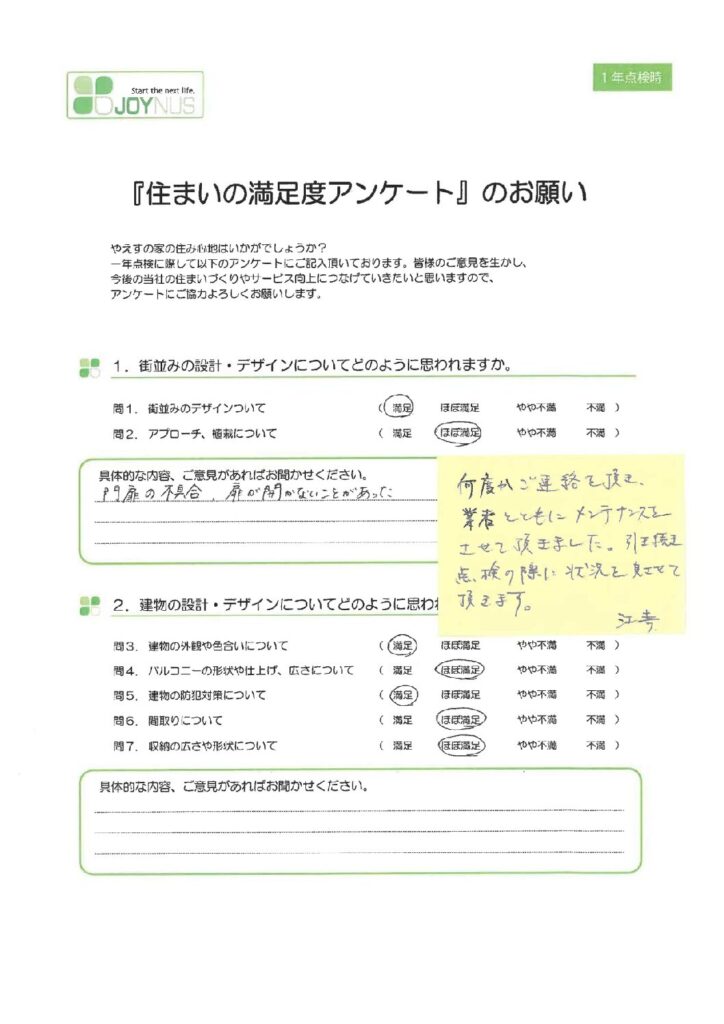 Start the next life.
JOYNUS
1年点検時
『住まいの満足度アンケート』のお願い
やえすの家の住み心地はいかがでしょうか?
一年点検に際して以下のアンケートにご記入頂いております。皆様のご意見を生かし、
今後の当社の住まいづくりやサービス向上につなげていきたいと思いますので、
アンケートにご協力よろしくお願いします。
1. 街並みの設計・デザインについてどのように思われますか。
問1. 街並みのデザインついて ( 満足 ほぼ満足 やや不満 不満 )
問2. アプローチ、植栽について ( 満足 ほぼ満足 やや不満 不満 )
具体的な内容、ご意見があればお聞かせください。
門扉の不具合、扉が開かないことがあった
何度かご連絡を頂き、
業者とともにメンテナンスを
させて頂きました。引き続き
点検の際に状況を見させて
頂きます。
2. 建物の設計・デザインについてどのように思わ
問3. 建物の外観や色合いについて ( 満足 ほぼ満足 やや不満 不満 )
問4. バルコニーの形状や仕上げ、広さについて ( 満足 ほぼ満足 やや不満 不満 )
問5. 建物の防犯対策について ( 満足 ほぼ満足 やや不満 不満 )
問6. 間取りについて ( 満足 ほぼ満足 やや不満 不満 )
問7. 収納の広さや形状について ( 満足 ほぼ満足 やや不満 不満 )
具体的な内容、ご意見があればお聞かせください。